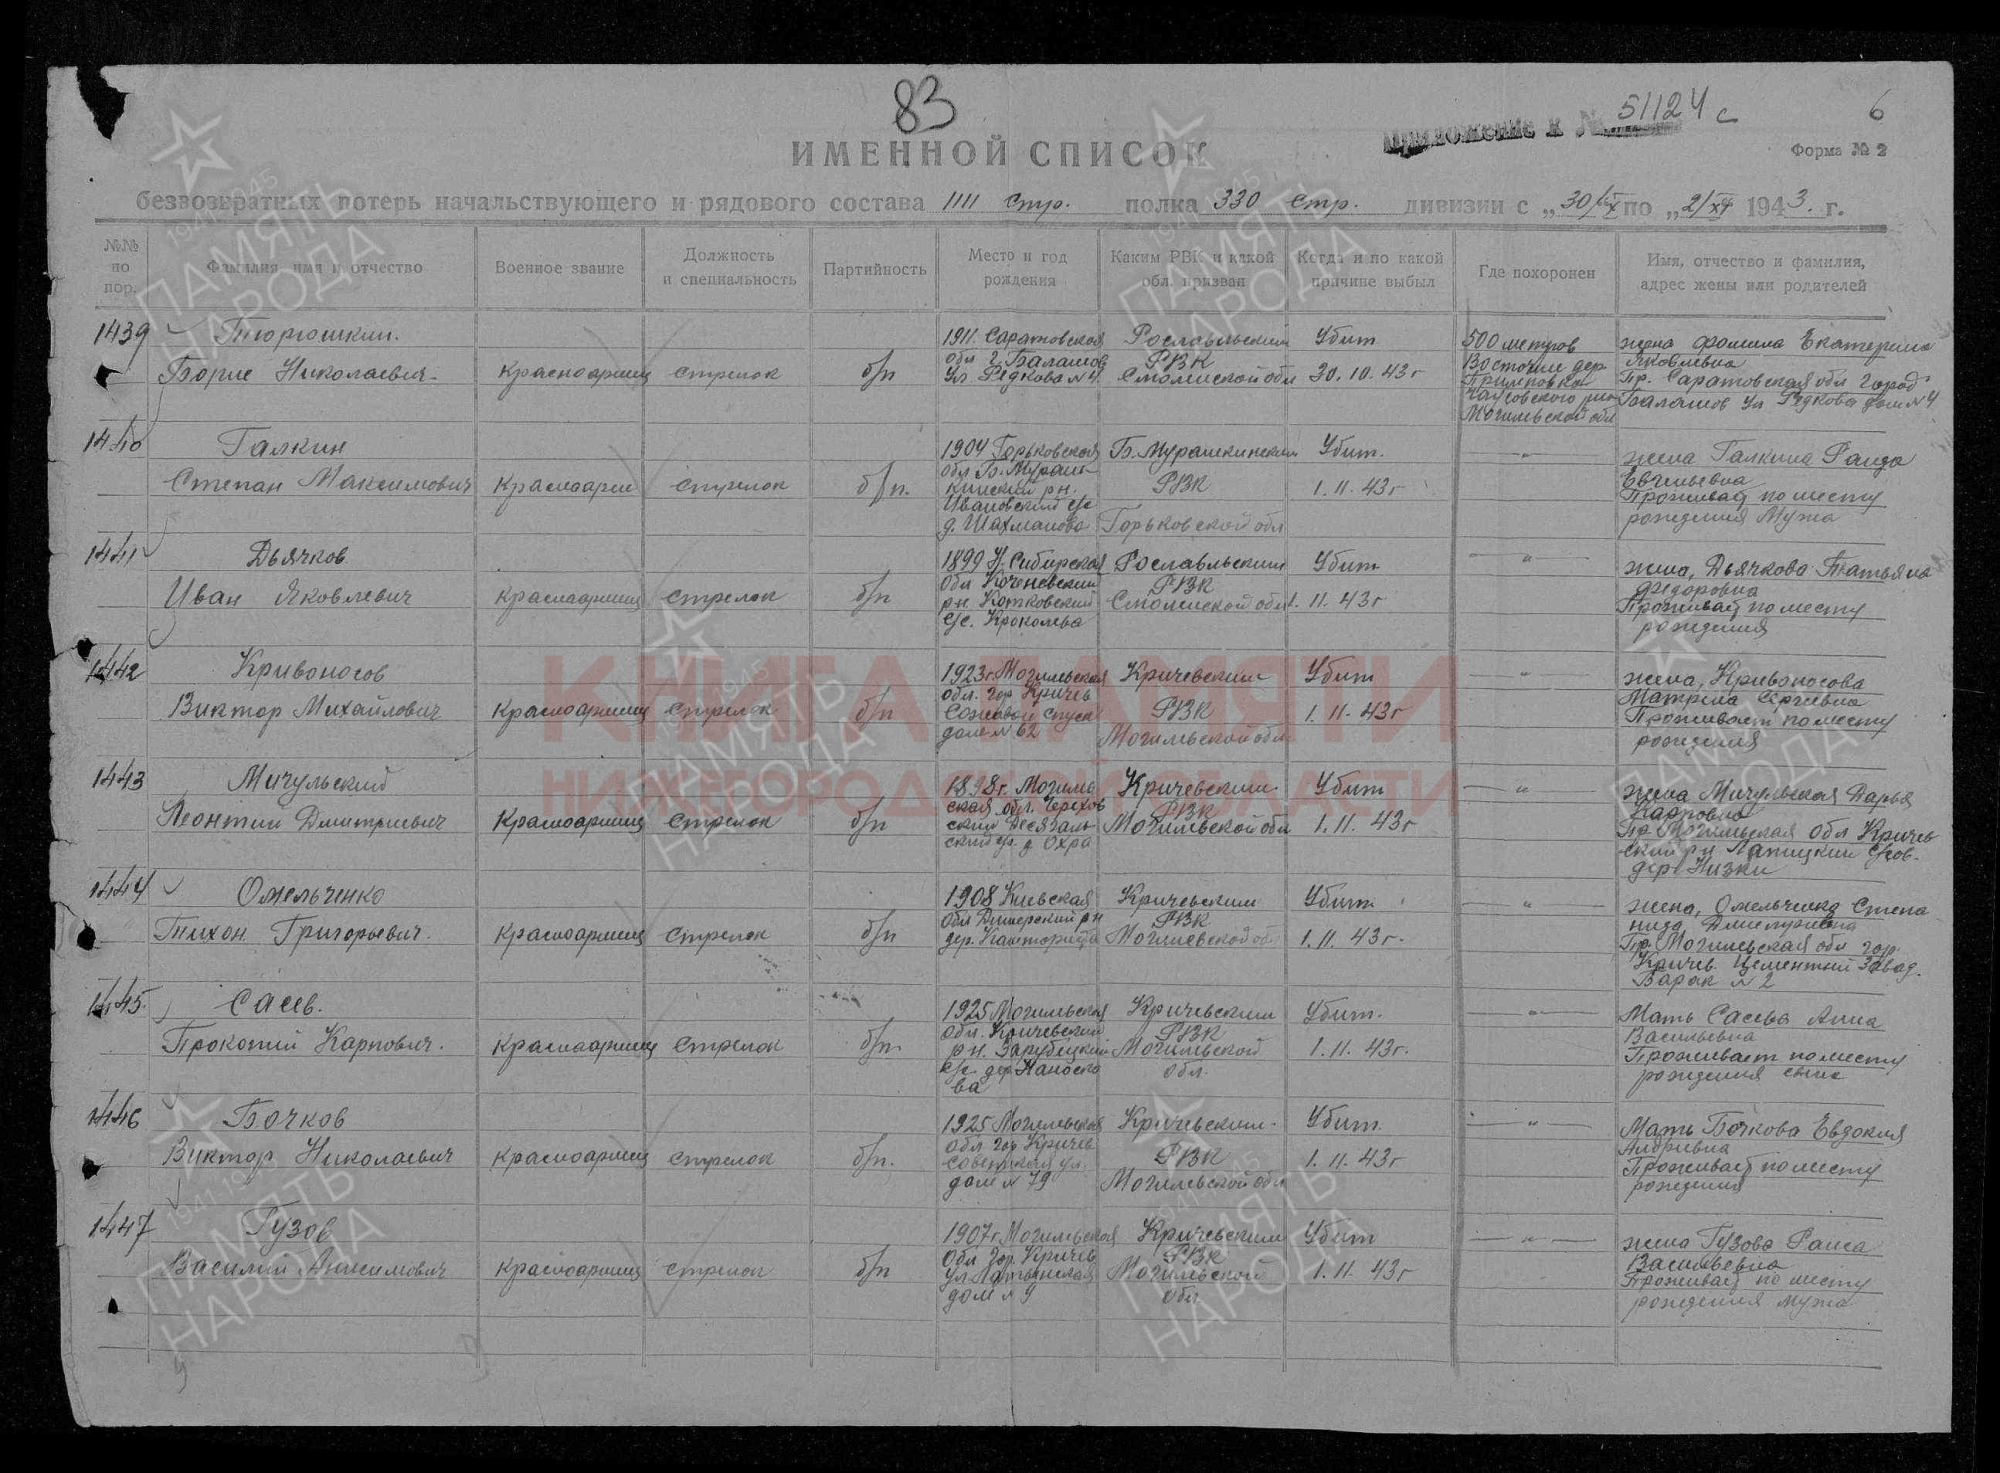 83
51124 с
6
Приложение к №
ИМЕННОЙ СПИСОК
Форма № 2
безвозвратных потерь начальствующего и рядового состава 1111 стр. полка 330 стр. дивизии с „30/X по „2/XI 1943. г.
№№ по пор.
Фамилия, имя и отчество
Военное звание
Должность и специальность
Партийность
Место и год рождения
Каким РВК и какой обл. призван
Когда и по какой причине выбыл
Где похоронен
Имя, отчество и фамилия, адрес жены или родителей
1439 Тюрюшкин. 1911. Саратовская Рославльским Убит 500 метров жена Фомина Екатерина
Борис Николаевич красноармеец стрелок б/п обл г. Балашов РВК 30.10.43 г Восточнее дер Яковлевна
ул Редкова № 4. Смоленской обл Прилеповка Пр. Саратовская обл город
Чаусовского рна Балашов ул Редкова дом № 4
Могилевской обл
1440 Галкин 1904 Горьковская Б. Мурашкинским Убит. —„— жена Галкина Раида
Степан Максимович красноарме стрелок б/п. обл Б. Мураш- РВК 1.11.43 г Евгеньевна
кинский рн. Проживает по месту
Ивановский с/с
д. Шахманова Горьковской обл рождения мужа
1441 Дьячков 1899 Н. Сибирская Рославльским Убит —„— жена, Дьячкова Татьяна
Иван Яковлевич красноармеец стрелок б/п обл Коченевский РВК 1.11.43 г Федоровна
рн Смоленской обл Проживает по месту
с/с. рождения
1442 Кривоносов 1923 г. Могилевская Кричевским Убит —„— жена, Кривоносова
Виктор Михайлович красноармеец стрелок б/п обл. гор Кричев РВК 1.11.43 г Матрена Сергеевна
Сожевой спуск Проживает по месту
дом № 62 Могилевской обл. рождения
1443 Мичульский 1898 г. Могилев Кричевским Убит —„— жена Мичульская Дарья
Леонтий Дмитриевич красноармеец стрелок б/п ская обл. РВК 1.11.43 г Карповна
Могилевской обл Пр. Могилевская обл Кричев
с/с. д Охра ский рн с/сов.
дер Низки
1444 Омельченко 1908 Киевская Кричевским Убит. —„— жена, Омельченко Степа
Тихон Григорьевич. красноармеец стрелок б/п обл Дымерский рн РВК 1.11.43 г. нида
дер. Могилевской об Пр. Могилевская обл гор.
Кричев. Цементный Завод.
Барак № 2
1445. Сасев. 1925 Могилевская Кричевским Убит. —„— Мать Сасева Анна
Прокопий Карпович. красноармеец стрелок б/п. обл. Кричевский РВК 1.11.43 г. Васильевна
рн. Зарубецкий Могилевской Проживает по месту
с/с дер обл. рождения сына
ва
1446 Бочков 1925 Могилевская Кричевским. Убит. —„— Мать Бочкова Евдокия
Виктор Николаевич красноармеец стрелок б/п. обл гор Кричев РВК 1.11.43 г Андреевна
Советская ул. Проживает по месту
дом № 79 Могилевской обл рождения
1447 Гузов 1907 г Могилевская Кричевским Убит —„— жена Гузова Раиса
Василий Анисимович красноармеец стрелок б/п обл гор. Кричев РВК 1.11.43 г Васильевна
ул. Могилевской Проживает по месту
дом № 9 обл рождения мужа
КНИГА ПАМЯТИ
НИЖЕГОРОДСКОЙ ОБЛАСТИ
1941-1945
ПАМЯТЬ
НАРОДА
1941-1945
ПАМЯТЬ
НАРОДА
1941-1945
ПАМЯТЬ
НАРОДА
ПАМЯТЬ
НАРОДА
1941-1945
ПАМЯТЬ
НАРОДА
1941-1945
ПАМЯТЬ
НАРОДА